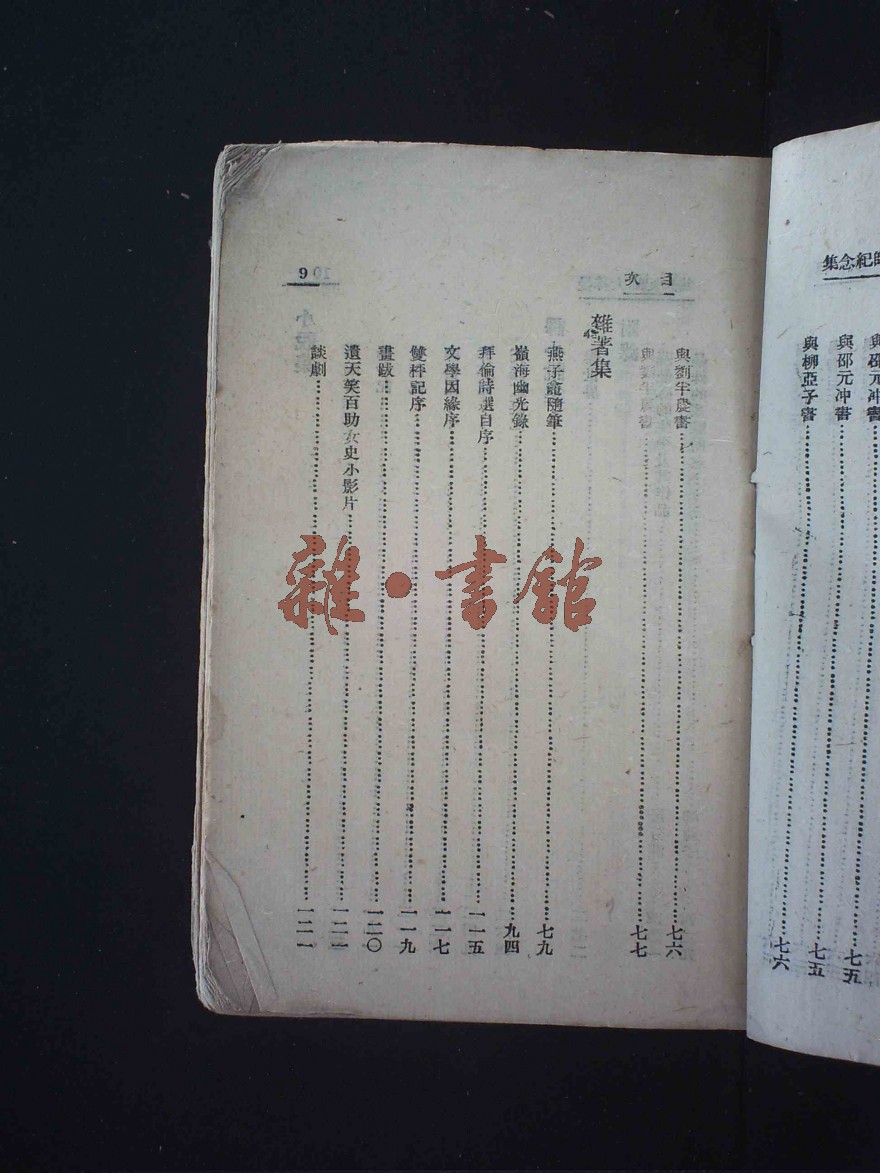 紀念集
與邵元冲書……七五
與邵元冲書……七五
與柳亞子書……七六
目次
9
與劉半農書……七六
與劉半農書……七七
雜著集
燕子龕隨筆……七九
嶺海幽光錄……九四
拜倫詩選自序……一一五
文學因緣序……一一七
雙枰記序……一一九
畫跋……一二〇
遺天笑百助女史小影片……一二一
談劇……一二一
雜·書館